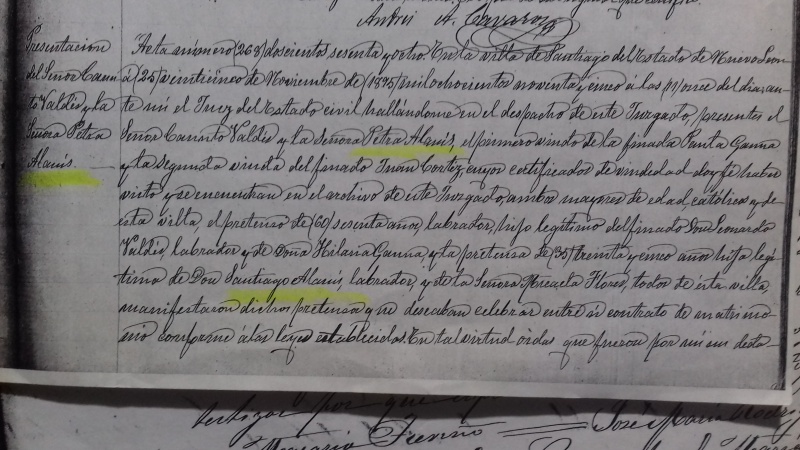 Andrés A. Cavazos
Presentacion
del Señor Canu
to Valdés y la
Señora Petra
Alanís.
Acta número (268) doscientos sesenta y ocho. En la villa de Santiago del Estado de Nuevo Leon
á (25) veinticinco de Noviembre de (1895) mil ochocientos noventa y cinco á las (11) once del dia; an-
te mi el Juez del Estado civil hallándome en el despacho de este Juzgado, presentes el
Señor Canuto Valdés y la Señora Petra Alanís, el primero viudo de la finada Paula Gauna
y la segunda viuda del finado Juan Cortez, cuyos certificados de viudedad doy fe haber
visto y se encuentran en el archivo de este Juzgado, ambos mayores de edad, católicos y de
esta villa, el pretenso de (60) sesenta años, labrador, hijo legítimo del finado Don Leonardo
Valdés, labrador y de Doña Hilaria Gauna, y la pretensa de (35) treinta y cinco años hija legí-
tima de Don Santiago Alanís, labrador, y de la Señora Micaela Flores, todos de ésta villa,
manifestaron dichos pretensos que deseaban celebrar entre sí contrato de matrimo-
nio conforme á las leyes establecidas. En tal virtud oidas que fueron por mi sus decla-
por que
José María Rodri
Treviño